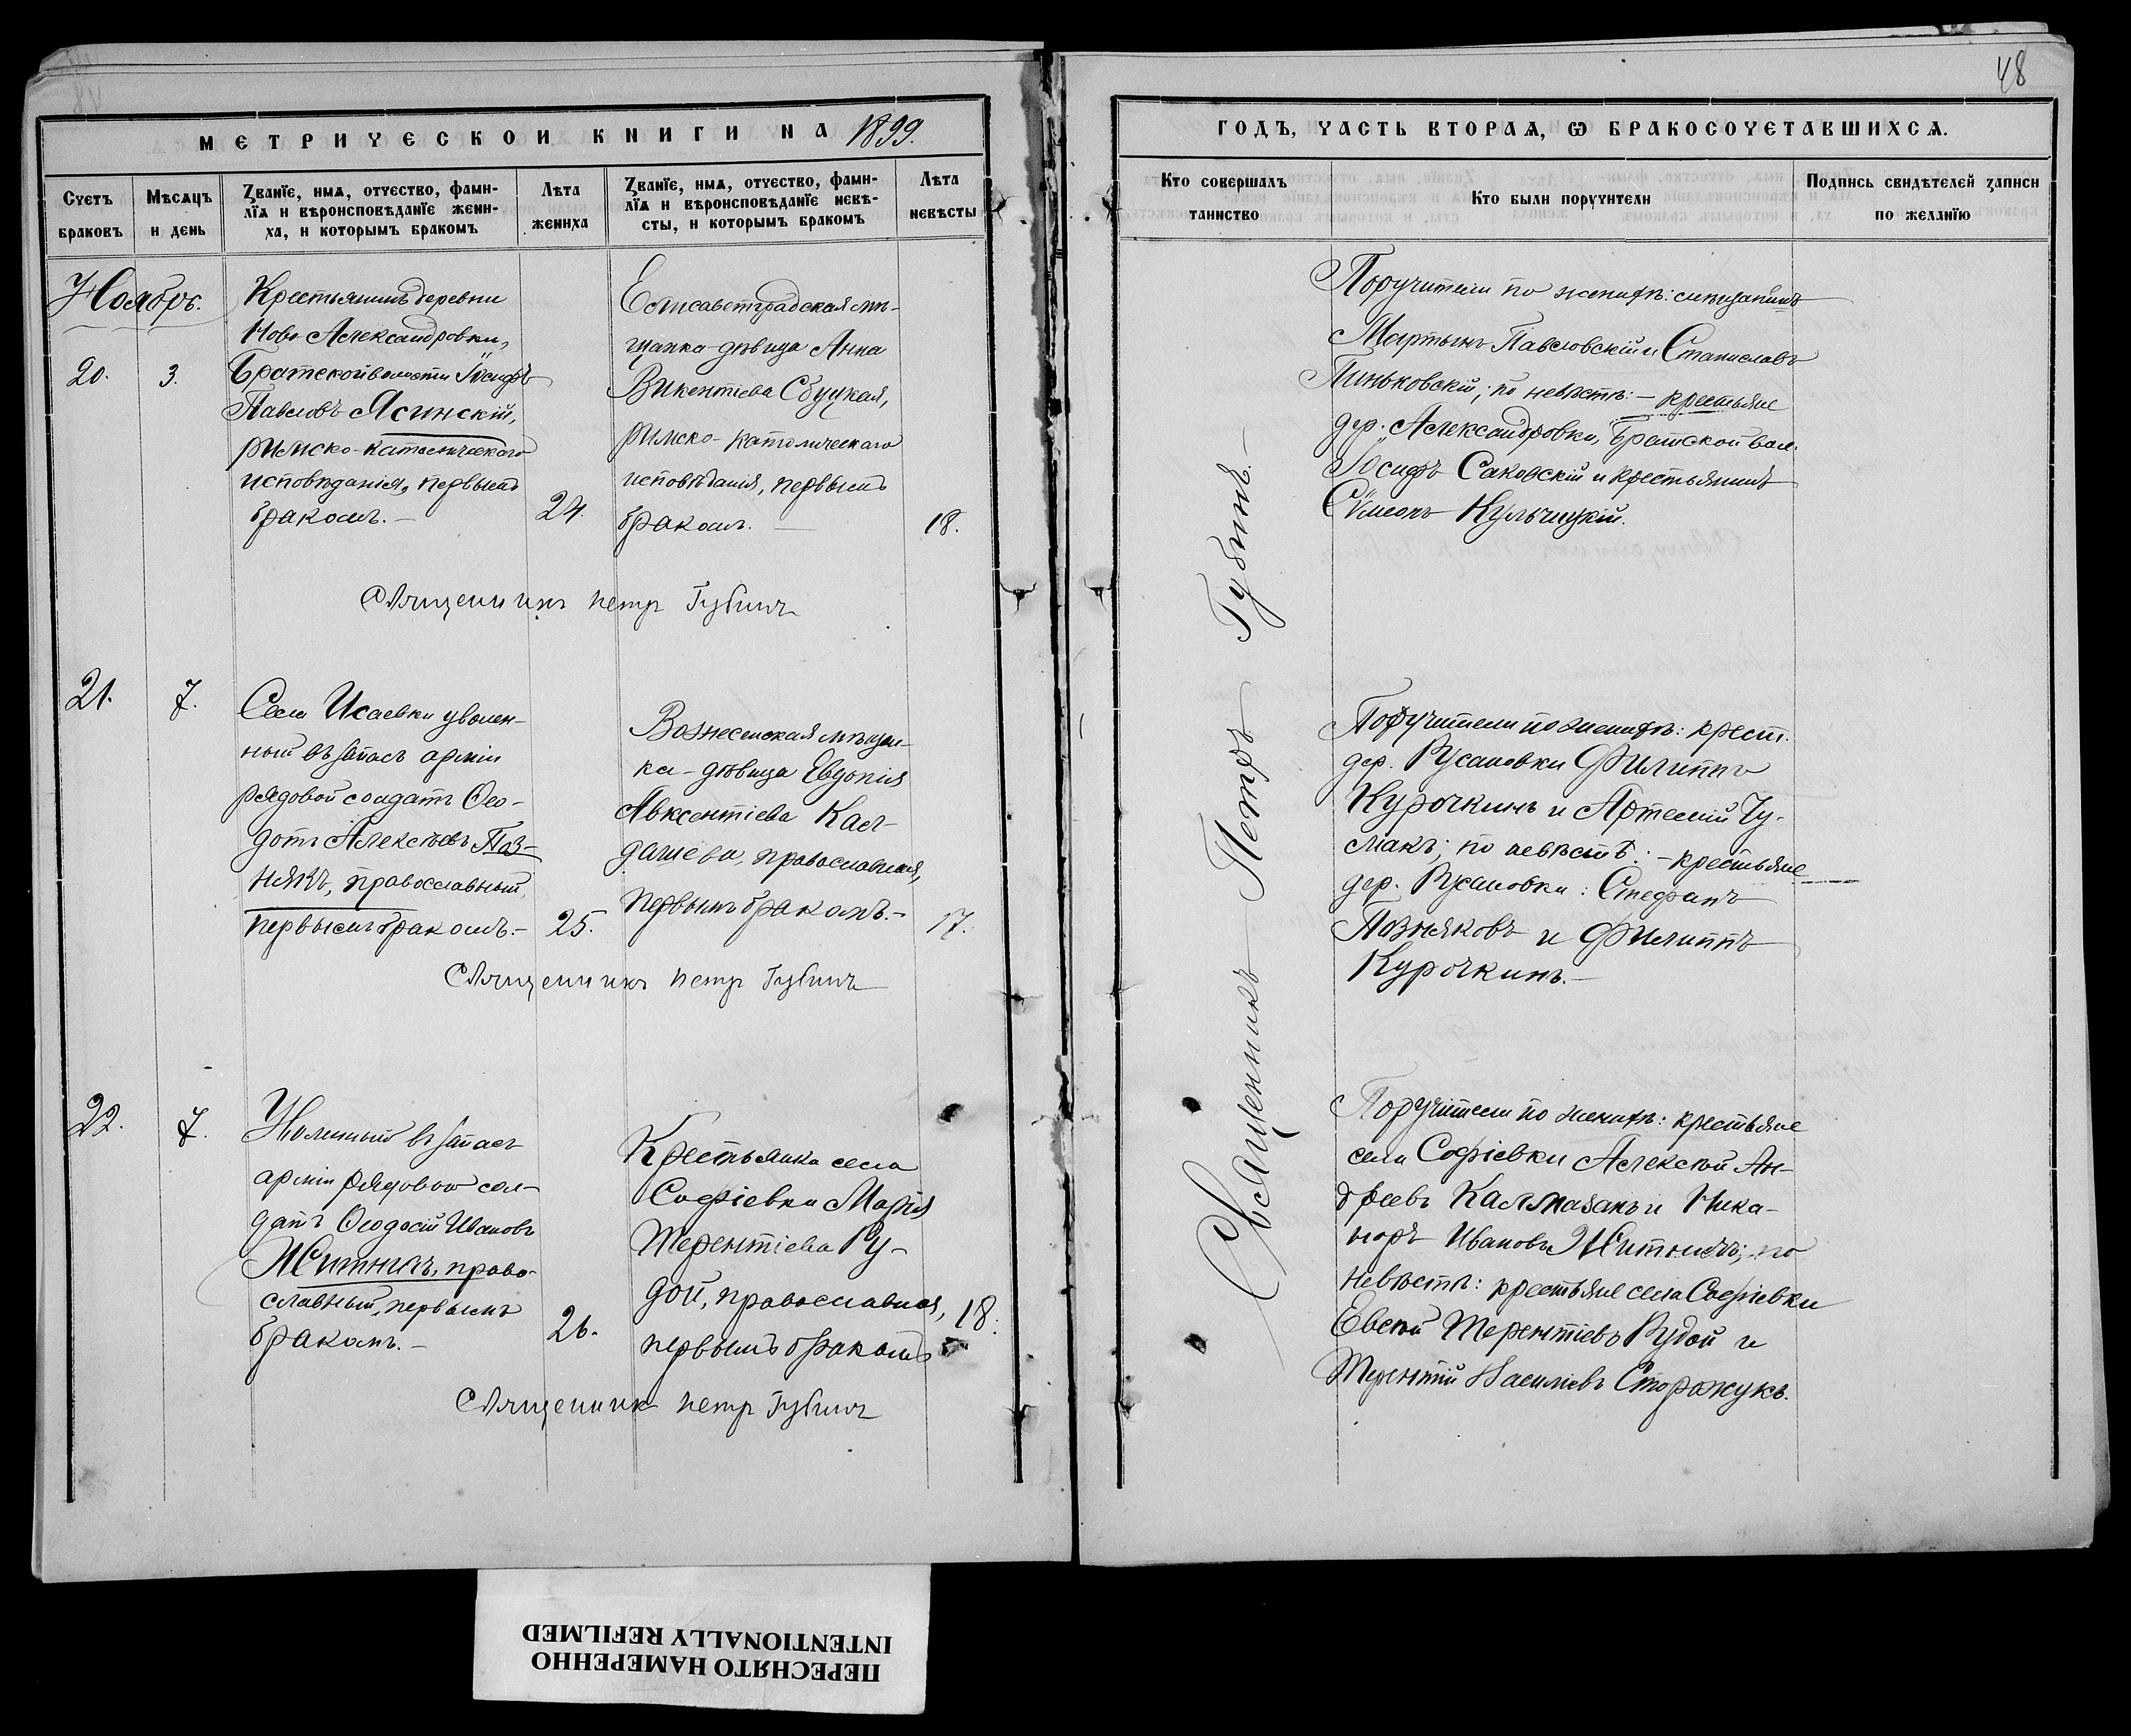 48
МЕТРИЧЕСКОЙ КНИГИ НА 1899.
ГОДЪ, ЧАСТЬ ВТОРАѦ, Ѡ БРАКОСОЧЕТАВШИХСѦ.
Счетъ
браковъ
Мѣсѧцъ
и день
Званїе, имѧ, отчество, фами-
лїѧ и вѣроисповѣданїе жени-
ха, и которымъ бракомъ
Лѣта
жениха
Званїе, имѧ, отчество, фами-
лїѧ и вѣроисповѣданїе невѣ-
сты, и которымъ бракомъ
Лѣта
невѣсты
Кто совершалъ
таинство
Кто были поручители
Подпись свидѣтелей записи
по желанїю
Ноябрь.
20.
3.
Крестьянинъ деревни
Ново-Александровки,
Братской волости Іосифъ
Павловъ Ясинскій,
римско-католическаго
исповѣданія, первымъ
бракомъ.—
24.
Елисаветградская мѣ-
щанка-дѣвица Анна
Викентіева
римско-католическаго
исповѣданія, первымъ
бракомъ.—
18.
Поручители по женихѣ: мѣщанинъ
Мартынъ Павловскій и Станиславъ
Пиньковскій; по невѣстѣ:— крестьяне
дер. Александровки, Братской вол.
Іосифъ Саковскій и крестьянинъ
Сѵмеонъ Кульчицкій.
Священникъ Петръ Губинъ
21.
7.
Села Исаевки уволен-
ный въ запасъ арміи
рядовой солдатъ Ѳео-
дотъ Алексѣевъ Поз-
някъ, православный,
первымъ бракомъ.—
25.
Вознесенская мѣщан-
ка-дѣвица Евдокія
Авксентіева Кал-
дашева, православная,
первымъ бракомъ.—
17.
Поручители по женихѣ: крест.
дер. Русановки Филиппъ
Курочкинъ и Артемій Чу-
макъ; по невѣстѣ:— крестьяне
дер. Русановки: Стефанъ
Позняковъ и Филиппъ
Курочкинъ.—
Священникъ Петръ Губинъ
22.
7.
въ запасъ
арміи рядовой сол-
датъ Ѳеодосій Ивановъ
Житникъ, право-
славный, первымъ
бракомъ.—
26.
Крестьянка села
Софіевки Марія
Терентіева Ру-
дой, православная,
первымъ бракомъ
18.
Поручители по женихѣ: крестьяне
села Софіевки Алексѣй Ан-
дреевъ Калмазанъ и Ника-
норъ Ивановъ Житникъ; по
невѣстѣ: крестьяне села Софіевки
Евсѣй Терентіевъ Рудой и
Терентій Василіевъ Сторожукъ.
Священникъ Петръ Губинъ
Священникъ Петръ Губинъ.—
ПЕРЕСНЯТО НАМЕРЕННО
INTENTIONALLY REFILMED